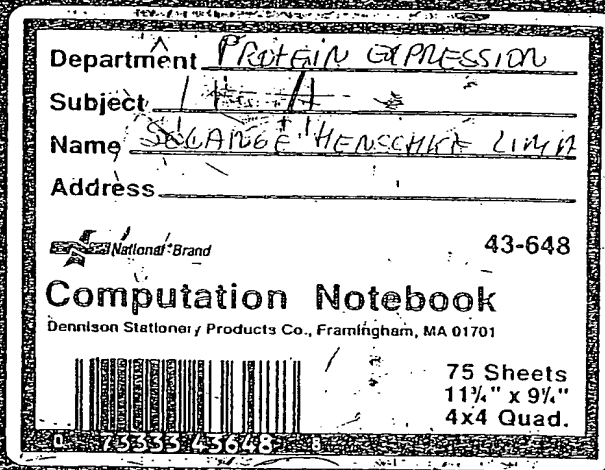 Department PROTEIN EXPRESSION
Subject
Name SOLANGE HENSCHKE LIMA
Address
National® Brand
43-648
Computation Notebook
Dennison Stationery Products Co., Framingham, MA 01701
75 Sheets
11¾" x 9¼"
4x4 Quad.
0 73333 43648 8